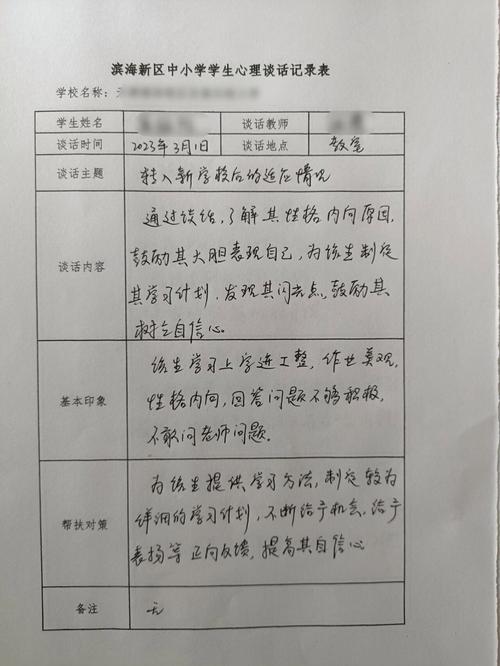 滨海新区中小学学生心理谈话记录表
学校名称：
学生姓名 谈话教师
谈话时间 2023年3月1日 谈话地点 教室
谈话主题 转入新学校后的适应情况
谈话内容
通过谈话，了解其性格内向原因，
鼓励其大胆表现自己，为该生制定
其学习计划，发现其闪光点，鼓励其
树立自信心。
基本印象
该生学习上字迹工整，作业美观，
性格内向，回答问题不够积极，
不敢问老师问题。
帮扶对策
为该生提供学习方法，制定较为
详细的学习计划，不断给予机会，给予
表扬等正向反馈，提高其自信心
备注 无